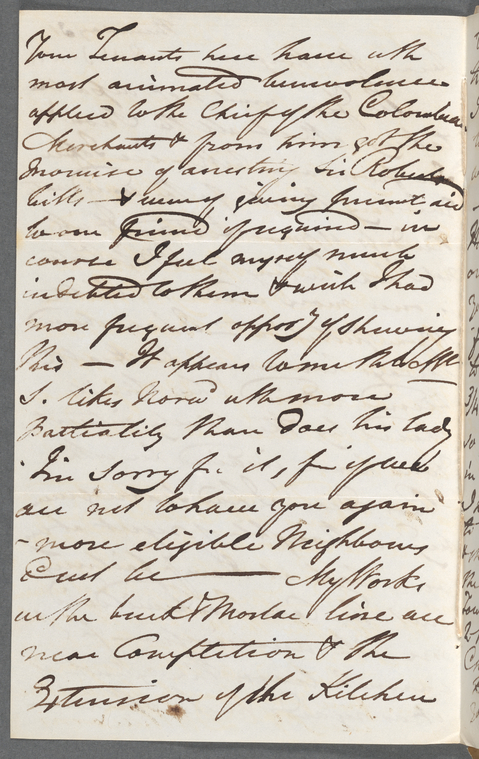 Your Tenants here have with
most animated benevolence
applied to the Chief of the Colombian
Merchants & from him got the
promise of arresting Sir Roberts
bills — & even of giving prompt aid
to our friend if required — in
course I feel myself much
indebted to them & wish I had
more frequent oppory of shewing
this — It appears to me that
S. likes Norwd with more
Partiality than does his lady
I'm sorry for it, for if we
are not to have you again
- more eligible Neighbours
Cant be — My Works
in the brick & Mortar line are
near Completion & the
Extension of the Kitchen